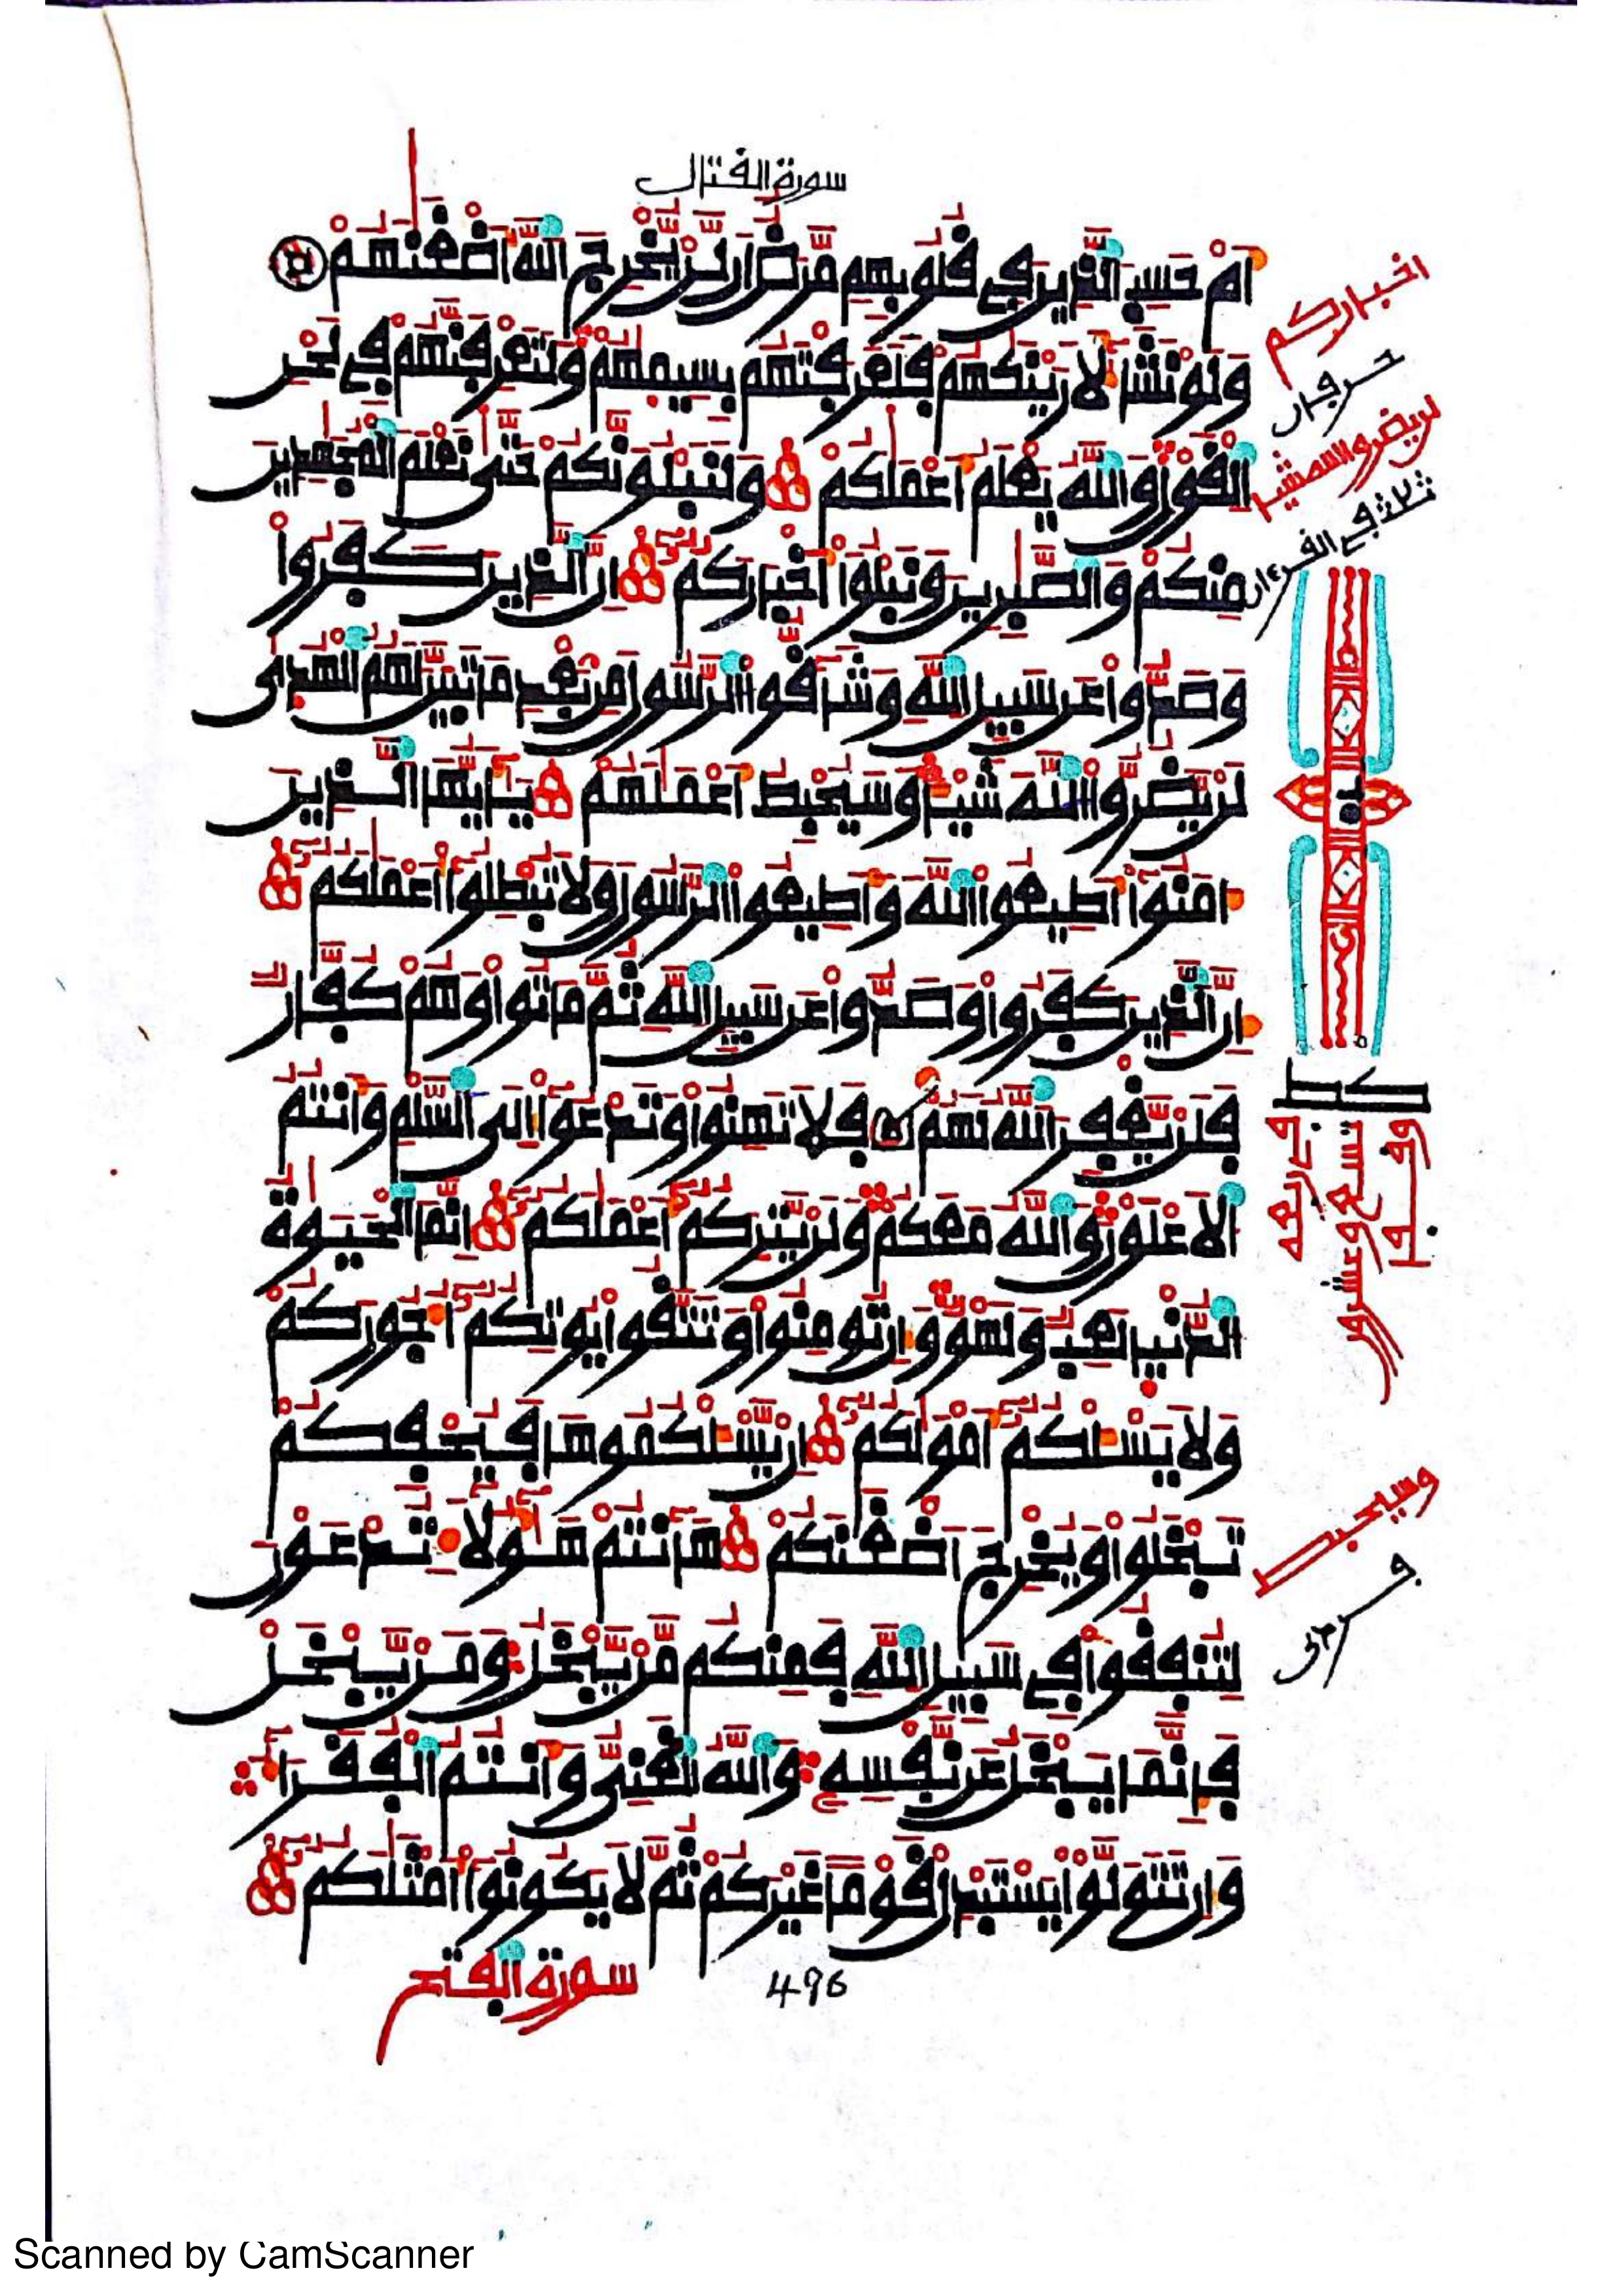 سورة القتال
أَمْ حَسِبَ الَّذِينَ فِي قُلُوبِهِم مَّرَضٌ أَن لَّن يُّخْرِجَ اللَّهُ أَضْغَٰنَهُمْ
وَلَوْ نَشَآءُ لَأَرَيْنَٰكَهُمْ فَلَعَرَفْتَهُم بِسِيمَٰهُمْ وَلَتَعْرِفَنَّهُمْ فِي لَحْنِ
الْقَوْلِ وَاللَّهُ يَعْلَمُ أَعْمَٰلَكُمْ وَلَنَبْلُوَنَّكُمْ حَتَّىٰ نَعْلَمَ الْمُجَٰهِدِينَ
مِنكُمْ وَالصَّٰبِرِينَ وَنَبْلُوَاْ أَخْبَارَكُمُ إِنَّ الَّذِينَ كَفَرُواْ
وَصَدُّواْ عَن سَبِيلِ اللَّهِ وَشَآقُّواْ الرَّسُولَ مِن بَعْدِ مَا تَبَيَّنَ لَهُمُ الْهُدَىٰ
لَن يَّضُرُّواْ اللَّهَ شَيْـًٔا وَسَيُحْبِطُ أَعْمَٰلَهُمْ يَٰٓأَيُّهَا الَّذِينَ
ءَامَنُوٓاْ أَطِيعُواْ اللَّهَ وَأَطِيعُواْ الرَّسُولَ وَلَا تُبْطِلُوٓاْ أَعْمَٰلَكُمُ
إِنَّ الَّذِينَ كَفَرُواْ وَصَدُّواْ عَن سَبِيلِ اللَّهِ ثُمَّ مَاتُواْ وَهُمْ كُفَّارٌ
فَلَن يَّغْفِرَ اللَّهُ لَهُمُ فَلَا تَهِنُواْ وَتَدْعُوٓاْ إِلَى السَّلْمِ وَأَنتُمُ
الْأَعْلَوْنَ وَاللَّهُ مَعَكُمْ وَلَن يَّتِرَكُمُ أَعْمَٰلَكُمُ إِنَّمَا الْحَيَوٰةُ
الدُّنْيَا لَعِبٌ وَلَهْوٌ وَإِن تُومِنُواْ وَتَتَّقُواْ يُوتِكُمُ أُجُورَكُمْ
وَلَا يَسْـَٔلْكُمُ أَمْوَٰلَكُمُ إِن يَّسْـَٔلْكُمُوهَا فَيُحْفِكُمْ
تَبْخَلُواْ وَيُخْرِجَ أَضْغَٰنَكُمْ هَآنتُمْ هَٰٓؤُلَآءِ تُدْعَوْنَ
لِتُنفِقُواْ فِي سَبِيلِ اللَّهِ فَمِنكُم مَّن يَّبْخَلُ وَمَن يَّبْخَلْ
فَإِنَّمَا يَبْخَلُ عَن نَّفْسِهِ وَاللَّهُ الْغَنِيُّ وَأَنتُمُ الْفُقَرَآءُ
وَإِن تَتَوَلَّوْاْ يَسْتَبْدِلْ قَوْمًا غَيْرَكُمْ ثُمَّ لَا يَكُونُوٓاْ أَمْثَٰلَكُمُ
سورة الفتح
496
اخباركم
حرفان
لن يضروا الله شيا
ثلاث في القرءان
كط
في أربعه
تسع وعشرون
وقفها
وسيحبط
Scanned by CamScanner